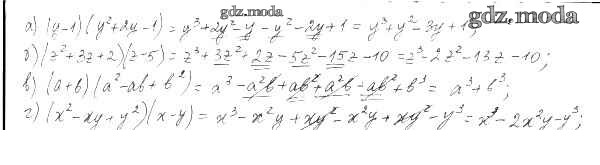 gdz.moda
а) (y-1)(y²+2y-1) = y³+2y²-y-y²-2y+1 = y³+y²-3y+1; gdz.moda
б) (z²+3z+2)(z-5) = z³+3z²+2z-5z²-15z-10 = z³-2z²-13z-10;
в) (a+b)(a²-ab+b²) = a³-a²b+ab²+a²b-ab²+b³ = a³+b³;
г) (x²-xy+y²)(x-y) = x³-x²y+xy²-x²y+xy²-y³ = x³-2x²y-y³;